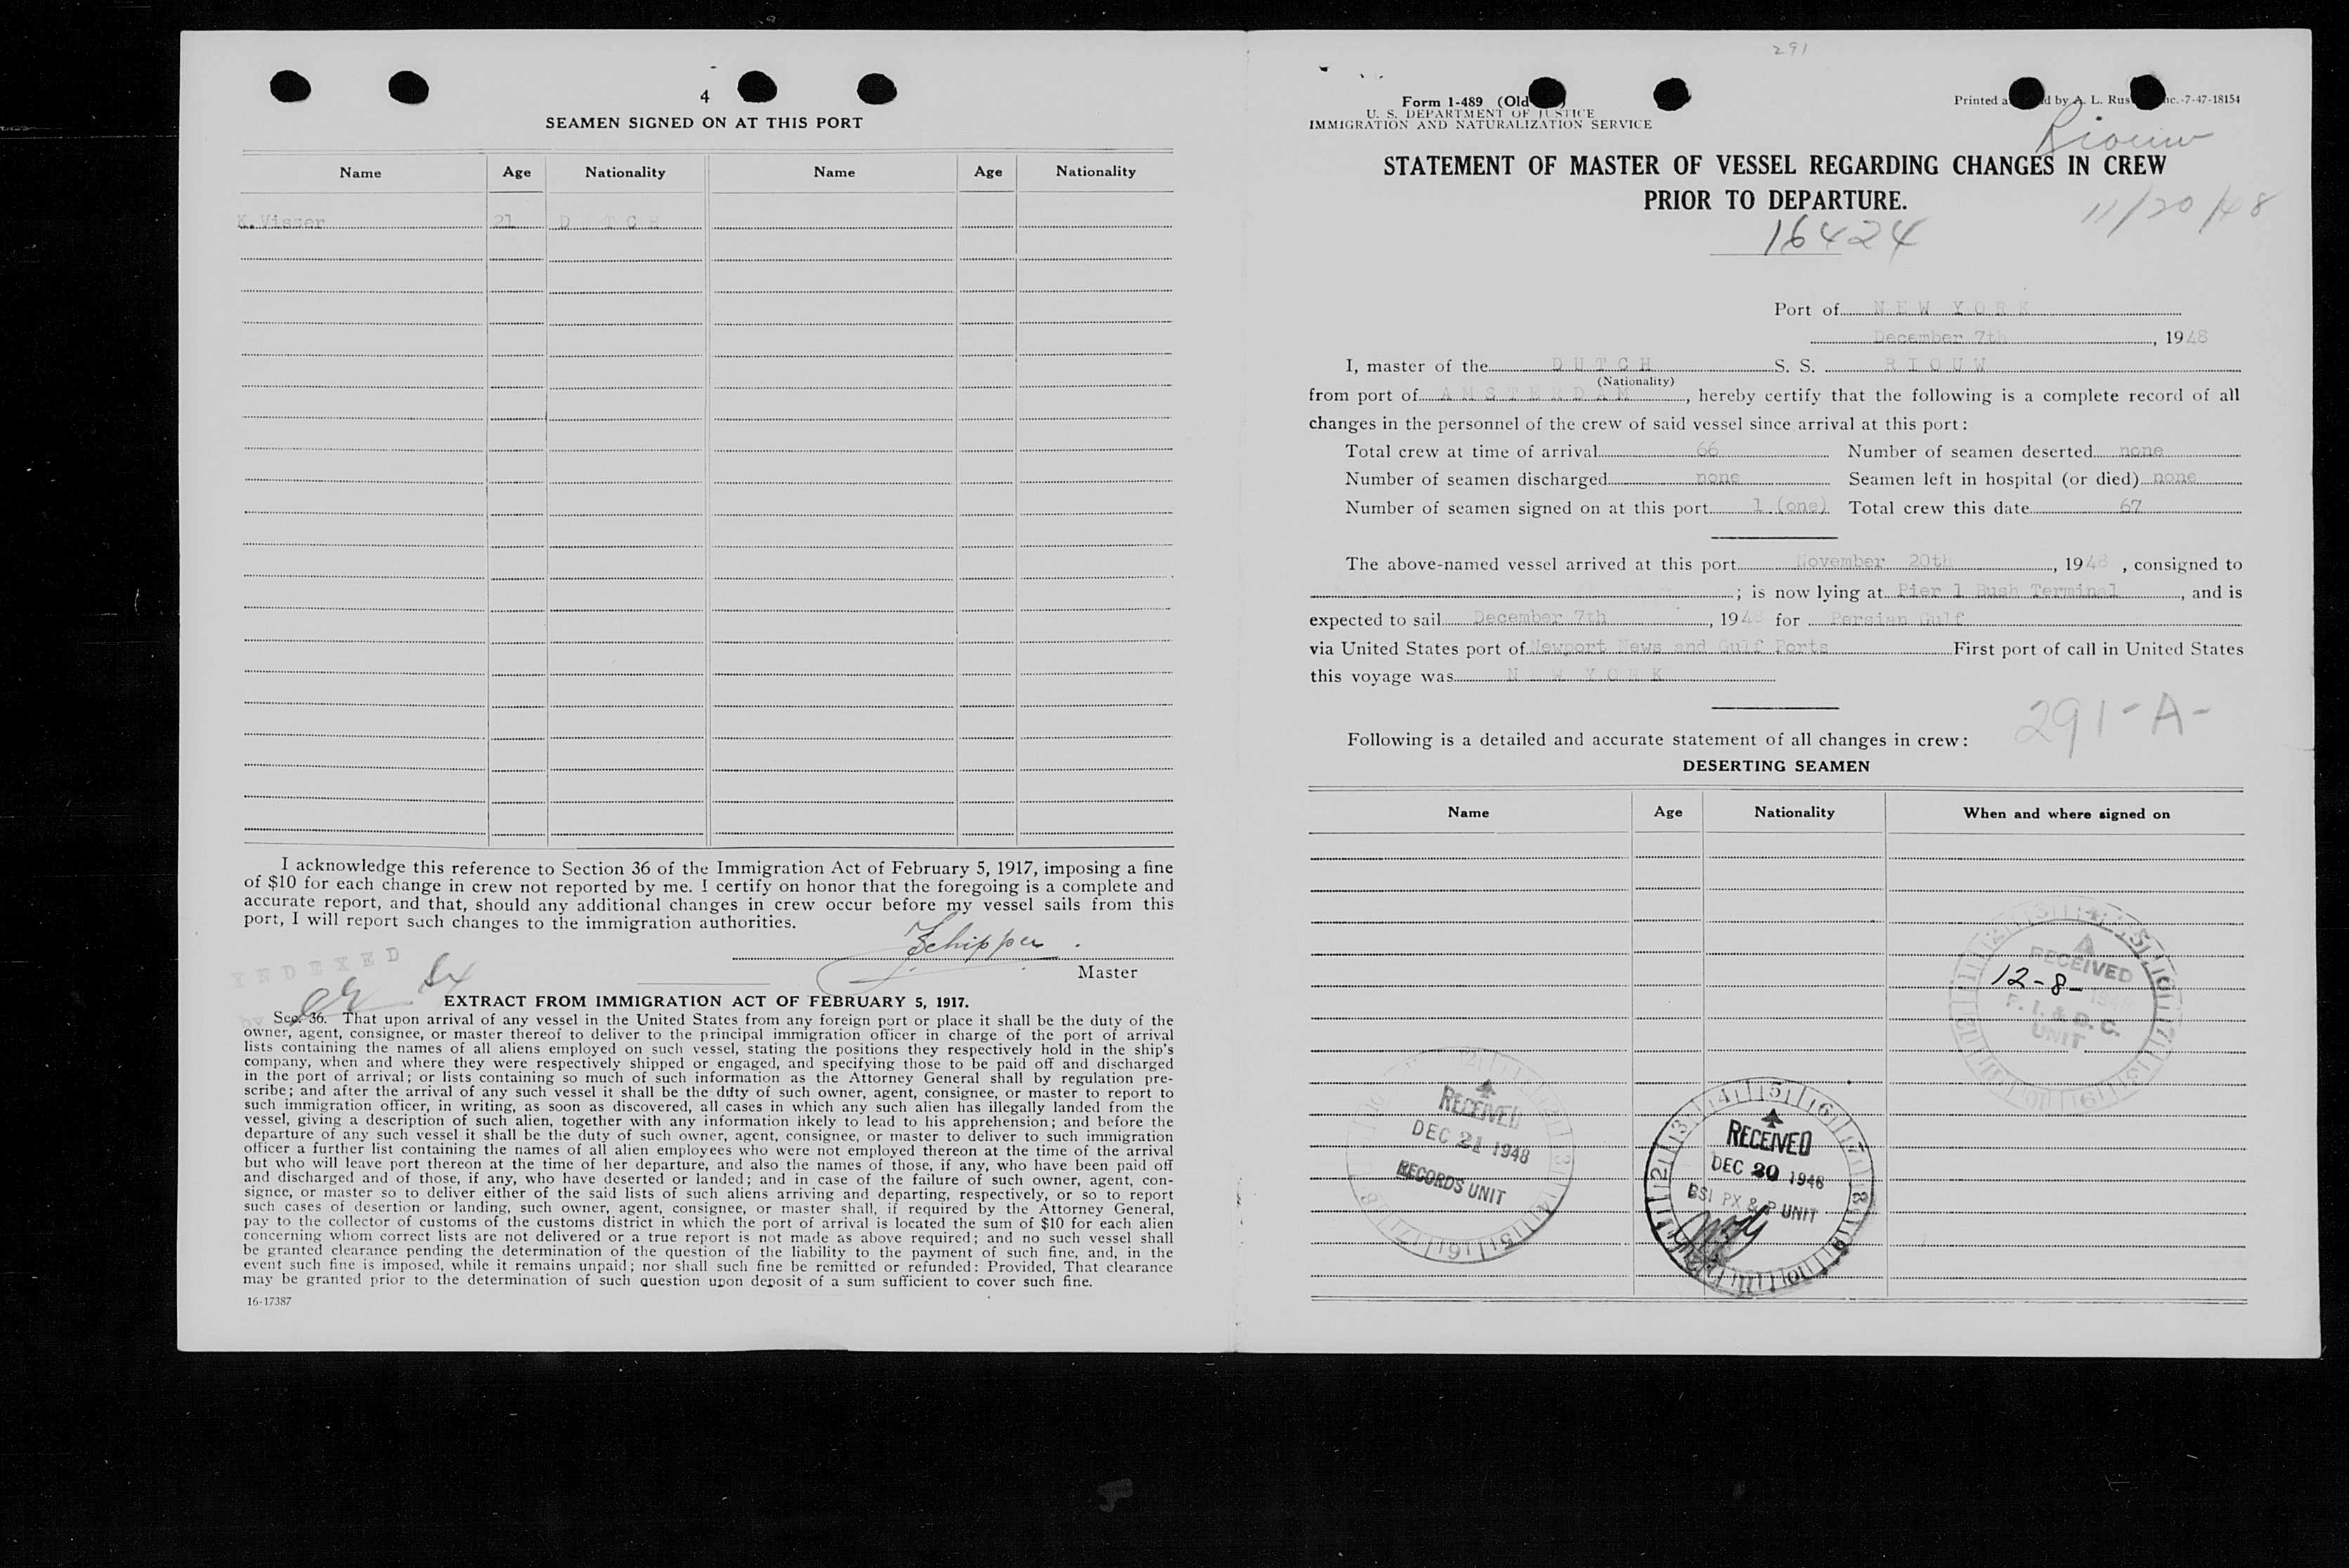 4
SEAMEN SIGNED ON AT THIS PORT
Name Age Nationality Name Age Nationality
K. Visser 21 D U T C H
I acknowledge this reference to Section 36 of the Immigration Act of February 5, 1917, imposing a fine
of $10 for each change in crew not reported by me. I certify on honor that the foregoing is a complete and
accurate report, and that, should any additional changes in crew occur before my vessel sails from this
port, I will report such changes to the immigration authorities.
Schipper
Master
INDEXED
EXTRACT FROM IMMIGRATION ACT OF FEBRUARY 5, 1917.
Sec. 36. That upon arrival of any vessel in the United States from any foreign port or place it shall be the duty of the
owner, agent, consignee, or master thereof to deliver to the principal immigration officer in charge of the port of arrival
lists containing the names of all aliens employed on such vessel, stating the positions they respectively hold in the ship's
company, when and where they were respectively shipped or engaged, and specifying those to be paid off and discharged
in the port of arrival; or lists containing so much of such information as the Attorney General shall by regulation pre-
scribe; and after the arrival of any such vessel it shall be the duty of such owner, agent, consignee, or master to report to
such immigration officer, in writing, as soon as discovered, all cases in which any such alien has illegally landed from the
vessel, giving a description of such alien, together with any information likely to lead to his apprehension; and before the
departure of any such vessel it shall be the duty of such owner, agent, consignee, or master to deliver to such immigration
officer a further list containing the names of all alien employees who were not employed thereon at the time of the arrival
but who will leave port thereon at the time of her departure, and also the names of those, if any, who have been paid off
and discharged and of those, if any, who have deserted or landed; and in case of the failure of such owner, agent, con-
signee, or master so to deliver either of the said lists of such aliens arriving and departing, respectively, or so to report
such cases of desertion or landing, such owner, agent, consignee, or master shall, if required by the Attorney General,
pay to the collector of customs of the customs district in which the port of arrival is located the sum of $10 for each alien
concerning whom correct lists are not delivered or a true report is not made as above required; and no such vessel shall
be granted clearance pending the determination of the question of the liability to the payment of such fine, and, in the
event such fine is imposed, while it remains unpaid; nor shall such fine be remitted or refunded: Provided, That clearance
may be granted prior to the determination of such question upon deposit of a sum sufficient to cover such fine.
16-17387
291
Form 1-489 (Old
U. S. DEPARTMENT OF JUSTICE
IMMIGRATION AND NATURALIZATION SERVICE
Printed a d by A. L. Rus nc.-7-47-18154
Riouw
STATEMENT OF MASTER OF VESSEL REGARDING CHANGES IN CREW
PRIOR TO DEPARTURE.
11/20/48
16424
Port of N E W Y O R K
December 7th, 1948
I, master of the D U T C H S. S. R I O U W
(Nationality)
from port of A M S T E R D A M, hereby certify that the following is a complete record of all
changes in the personnel of the crew of said vessel since arrival at this port:
Total crew at time of arrival 66 Number of seamen deserted none
Number of seamen discharged none Seamen left in hospital (or died) none
Number of seamen signed on at this port 1 (one) Total crew this date 67
The above-named vessel arrived at this port November 20th, 1948, consigned to
; is now lying at Pier 1 Bush Terminal, and is
expected to sail December 7th, 1948 for Persian Gulf
via United States port of Newport News and Gulf Ports First port of call in United States
this voyage was N E W Y O R K
291-A-
Following is a detailed and accurate statement of all changes in crew:
DESERTING SEAMEN
Name Age Nationality When and where signed on
RECEIVED
12-8-
F. I. & D. C.
UNIT
RECEIVED
DEC 21 1948
RECORDS UNIT
RECEIVED
DEC 20 1948
BSI PX & P UNIT